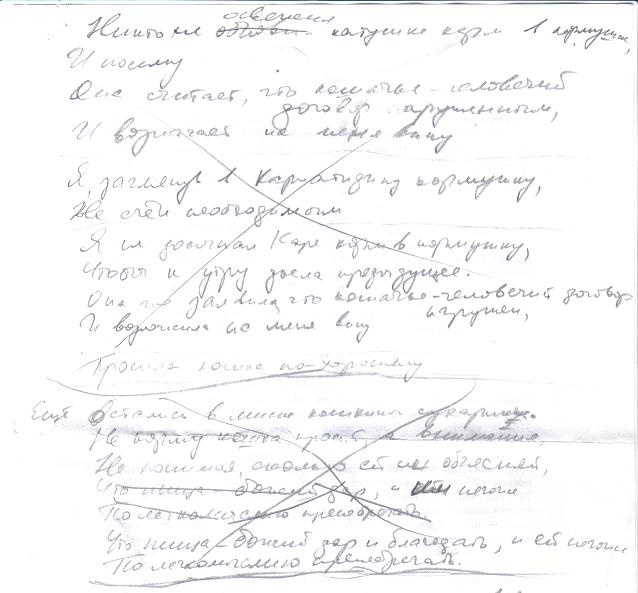 Никто не освежил
катушке корм в кормушке,
И посему
Она считает, что кошачье-человечий
договор нарушенным,
И возлагает на меня вину
Я, заглянув в Кариатидину кормушку,
Не счёл необходимым
Я не досыпал Каре корм в кормушку,
Чтобы к утру доела предыдущее.
Она же заявила, что кошачье-человечий договор
нарушен,
И возложила на меня вину
Просила кошка по-хорошему
Ещё Остались в миске кошкины сухарики.
Не корму кошка просит, а внимания
Не понимая, сколько ей ни объясняй,
Что пища – божий дар, и негоже
По легкомыслию пренебрегать.
Что пища – божий дар и благодать, и ей негоже
По легкомыслию пренебрегать.